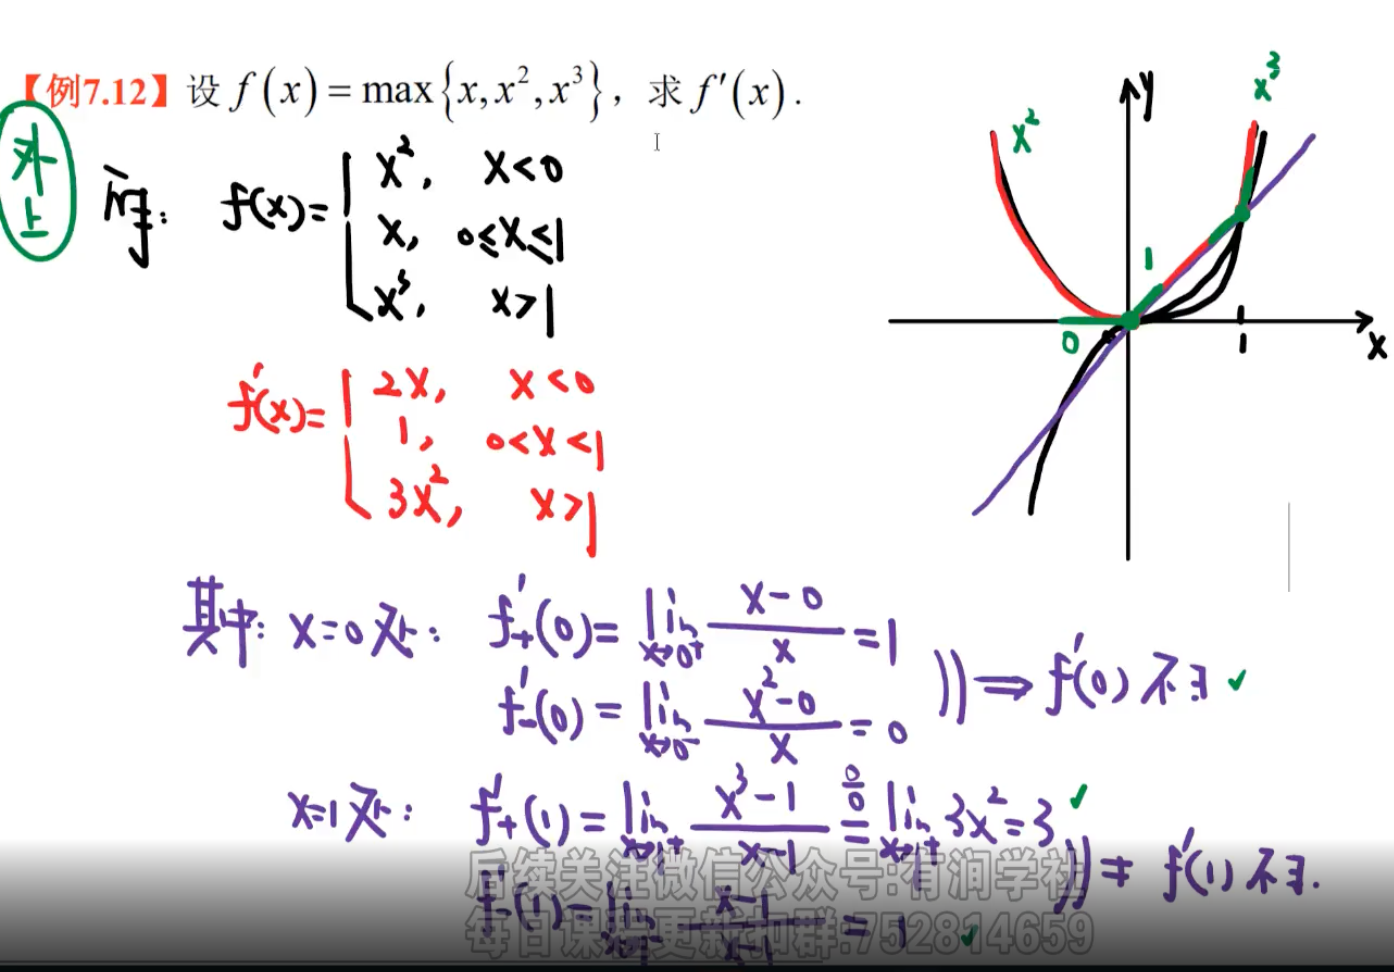 【例7.12】设 f(x) = max{x, x², x³}，求 f′(x).
外上
解: f(x)= { x², x<0
x, 0≤x≤1
x³, x>1
f'(x)= { 2x, x<0
1, 0<x<1
3x², x>1
y
x³
x²
1
0
1
x
其中: x=0处: f'₊(0)= lim x→0⁺ (x-0)/x =1
f'₋(0)= lim x→0⁻ (x²-0)/x =0
⇒ f'(0)不∃ ✓
x=1处: f'₊(1)= lim x→1⁺ (x³-1)/(x-1) =(0/0) lim x→1⁺ 3x²=3 ✓
f'₋(1)= lim x→1⁻ (x-1)/(x-1) =1 ✓
⇒ f'(1)不∃.
后续关注微信公众号:有润学社
每日课程更新扣群:752814659